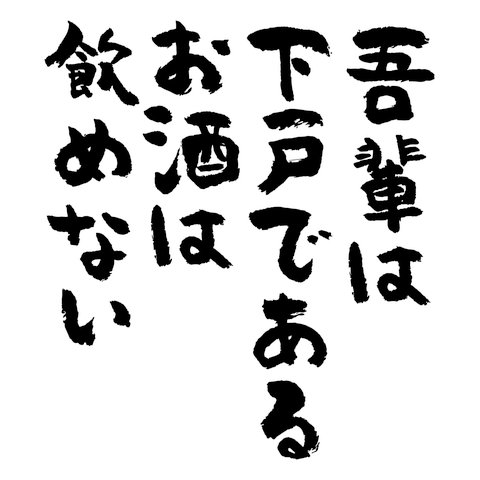 吾輩は
下戸である
お酒は
飲めない